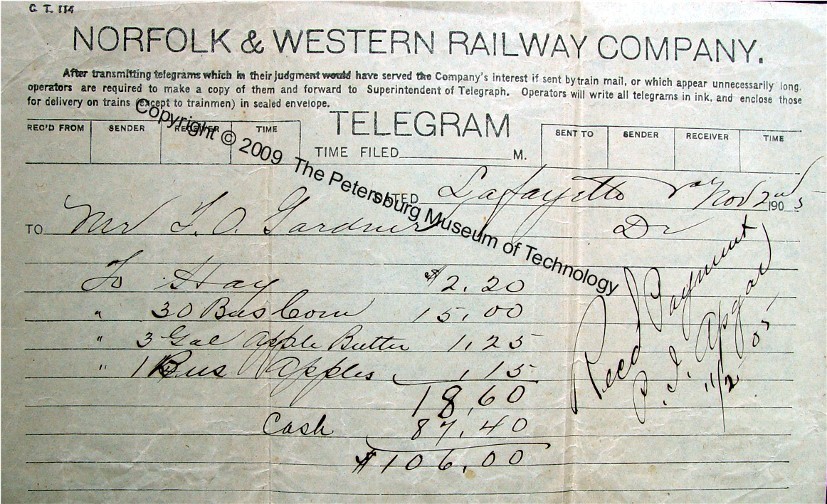 C. T. 114
NORFOLK & WESTERN RAILWAY COMPANY.
After transmitting telegrams which in their judgment would have served the Company's interest if sent by train mail, or which appear unnecessarily long,
operators are required to make a copy of them and forward to Superintendent of Telegraph. Operators will write all telegrams in ink, and enclose those
for delivery on trains (except to trainmen) in sealed envelope.
TELEGRAM
REC'D FROM SENDER RECEIVER TIME
SENT TO SENDER RECEIVER TIME
TIME FILED M.
DATED Lafayette Va Nov 2nd 1905
TO Mr F. O. Gardner Dr
To Hay $2.20
" 30 Bus Corn 15,00
" 3 Gal Apple Butter 1,25
" 1 Bus Apples ,15
18,60
Cash 87,40
$106,00
Recd Payment
P. I. Apgar
11/2 05
Copyright © 2009 The Petersburg Museum of Technology